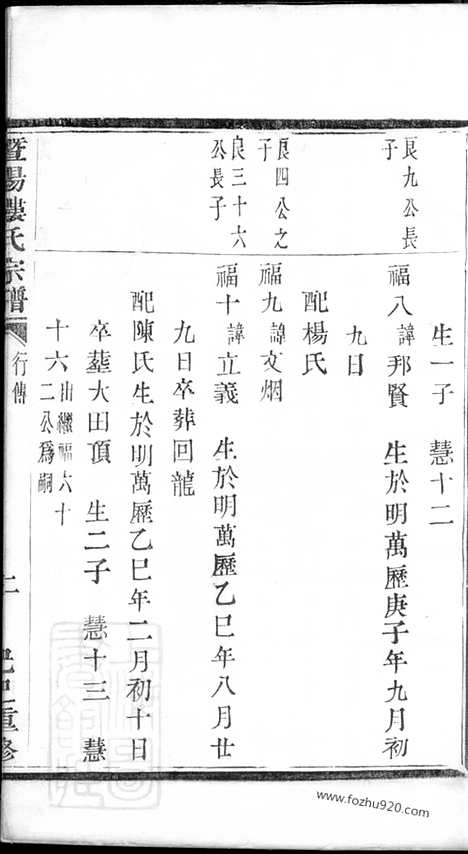 生一子 慧十二
良九公長子
福八諱邦賢 生於明萬歷庚子年九月初
九日
配楊氏
良四公之子
福九諱文烟
良三十六公長子
福十諱立義 生於明萬歷乙巳年八月廿
九日卒葬回龍
配陳氏生於明萬歷乙巳年二月初十日
卒葬大田頂 生二子 慧十三 慧
十六出繼福六十二公爲嗣
暨陽樓氏宗譜 行傳 己巳重修
www.fozhu920.com